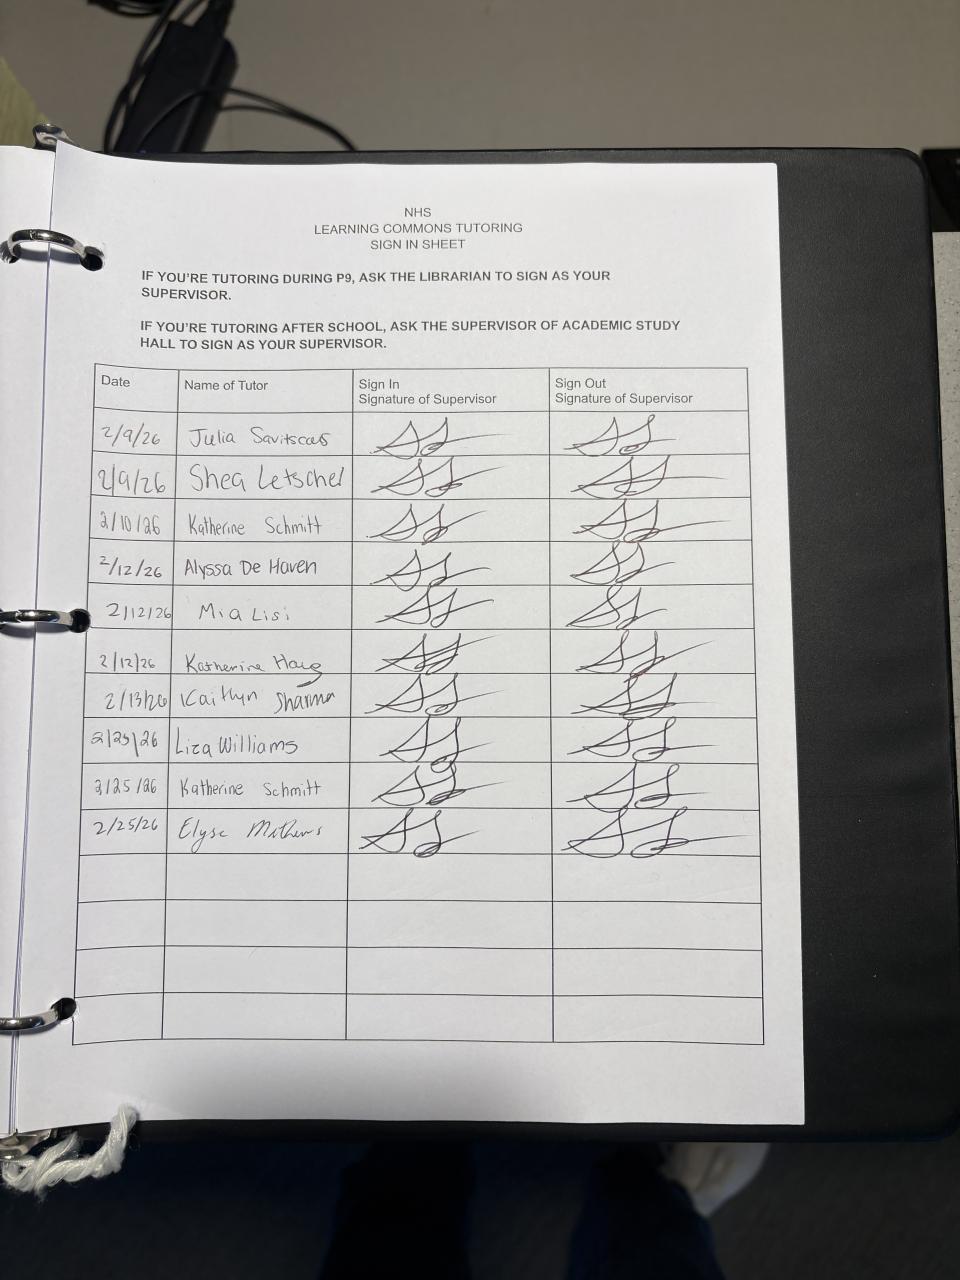 NHS
LEARNING COMMONS TUTORING
SIGN IN SHEET
IF YOU'RE TUTORING DURING P9, ASK THE LIBRARIAN TO SIGN AS YOUR
SUPERVISOR.
IF YOU'RE TUTORING AFTER SCHOOL, ASK THE SUPERVISOR OF ACADEMIC STUDY
HALL TO SIGN AS YOUR SUPERVISOR.
Date Name of Tutor Sign In Signature of Supervisor Sign Out Signature of Supervisor
2/9/26 Julia
2/9/26 Shea Letschel
2/10/26 Katherine Schmitt
2/12/26 Alyssa De Haven
2/12/26 Mia Lisi
2/12/26 Katherine Haug
2/13/26 Kaitlyn Sharma
2/25/26 Liza Williams
2/25/26 Katherine Schmitt
2/25/26 Elyse